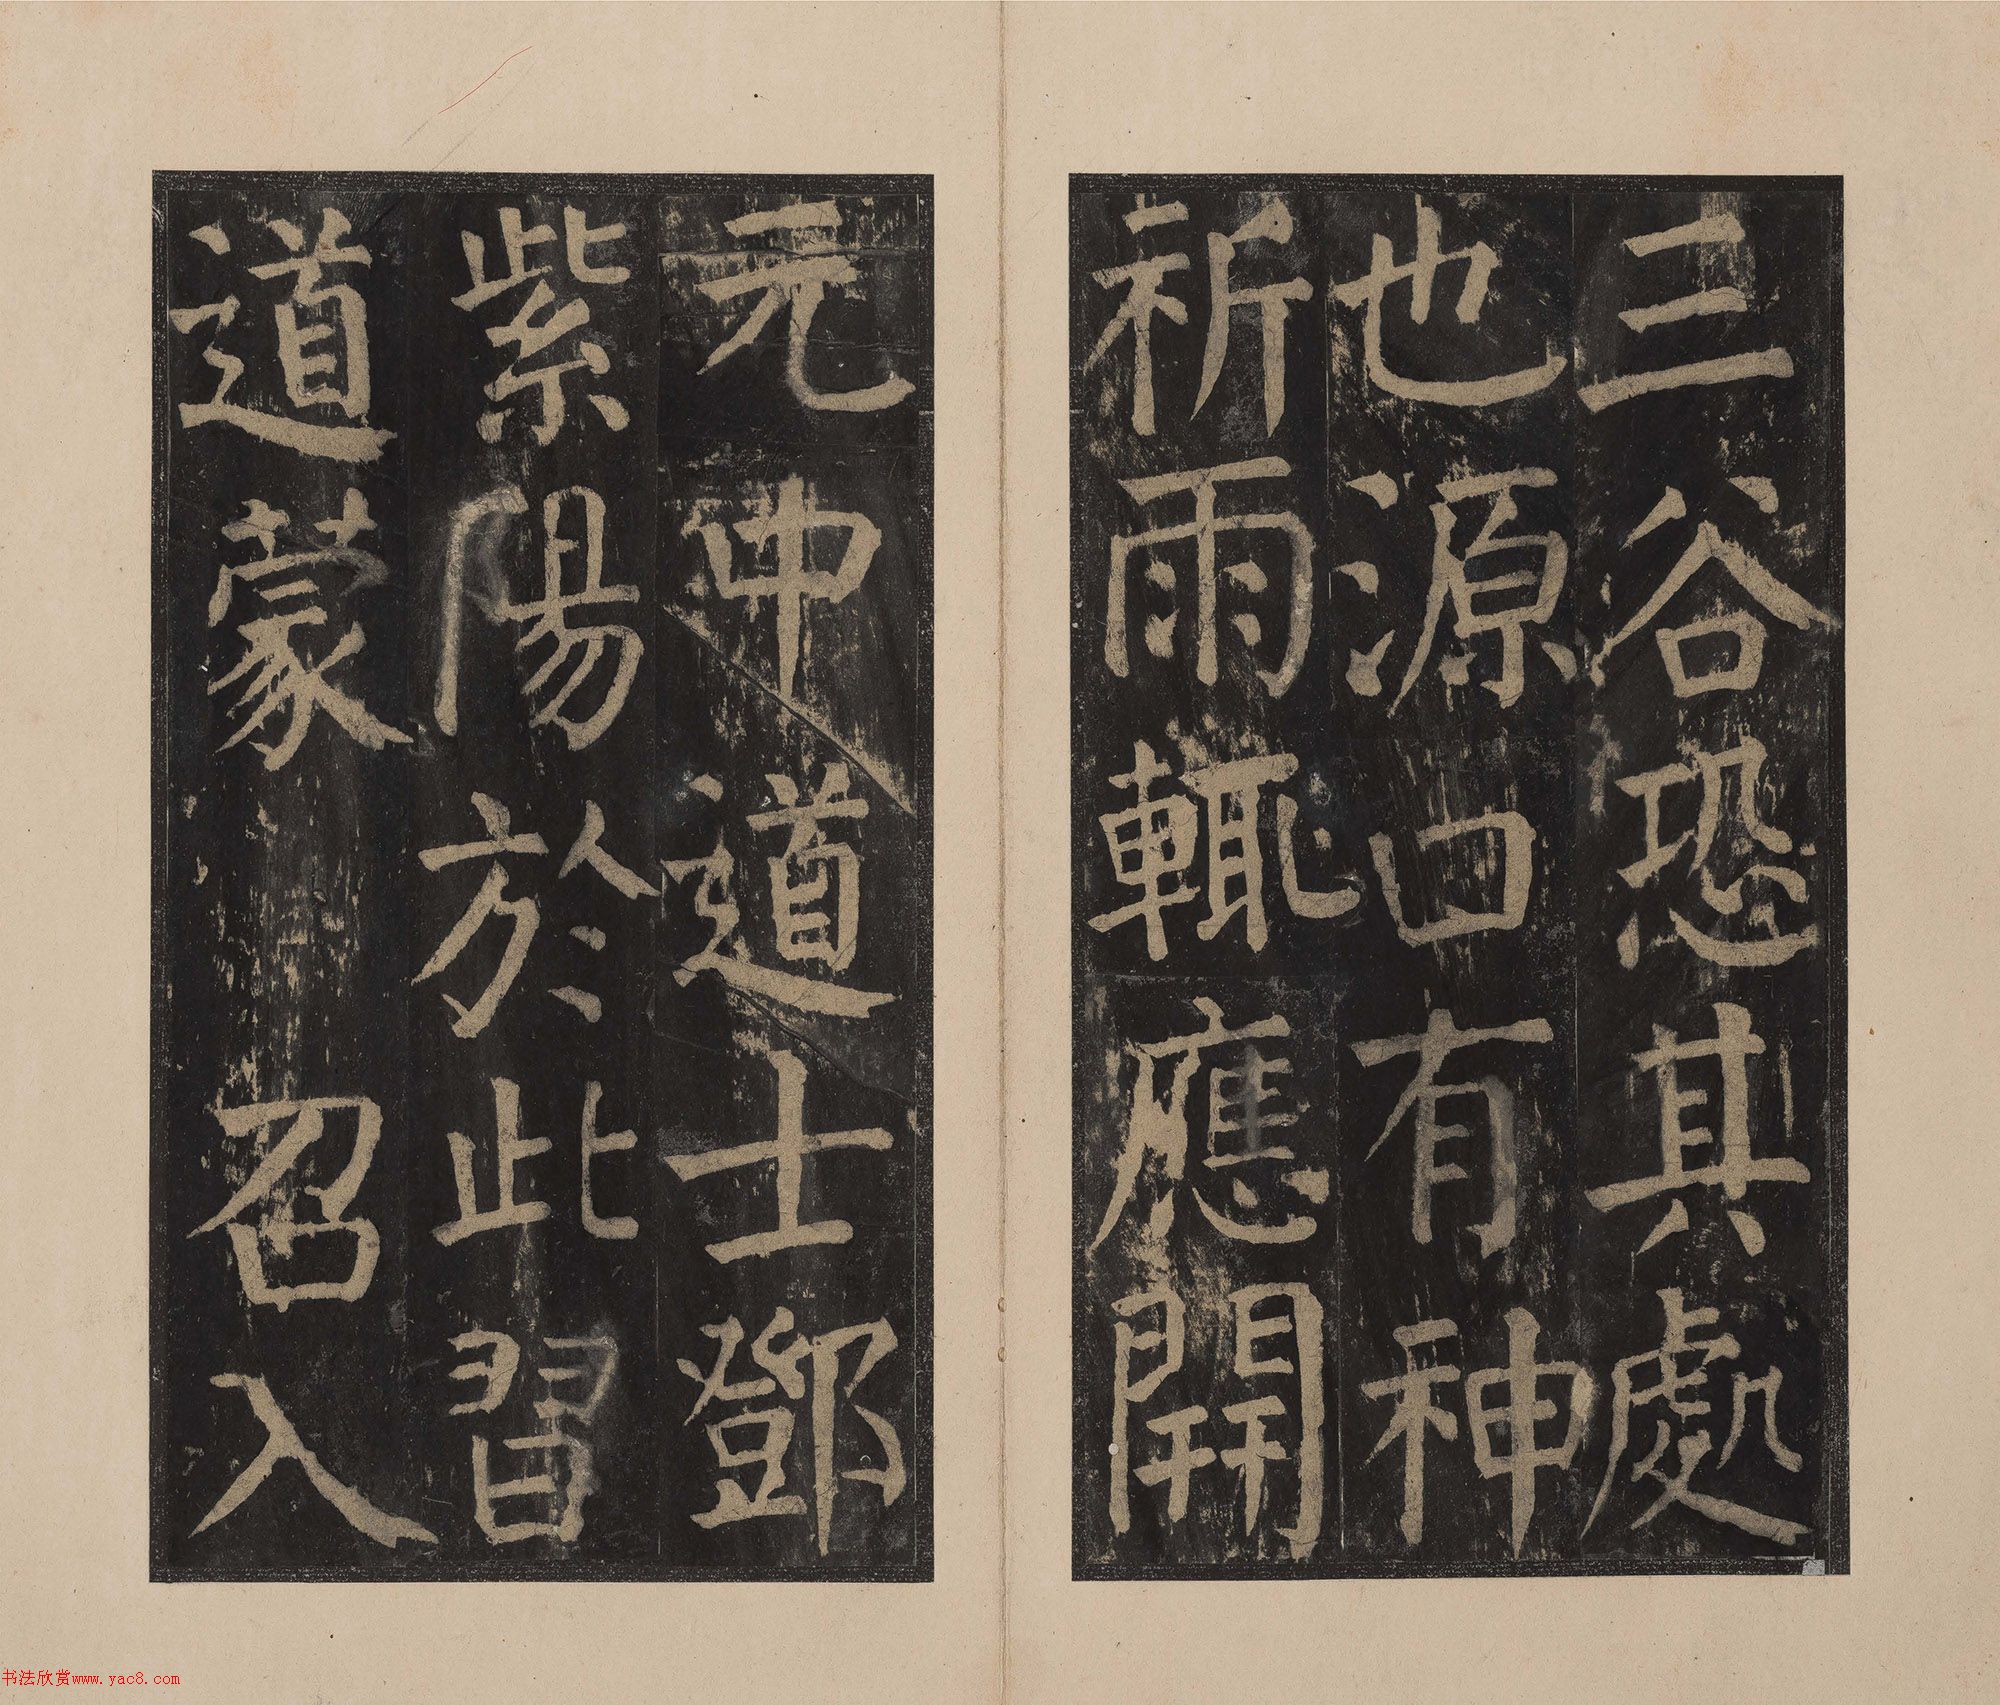 三谷恐其處
也源口有神
祈雨輒應開
元中道士鄧
紫陽於此習
道蒙 召入
书法欣赏www.yac8.com